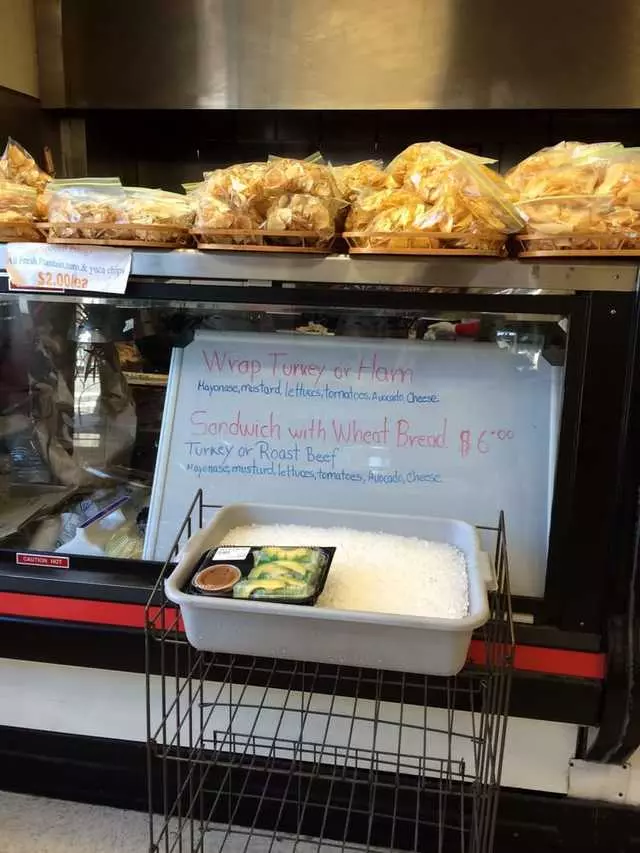 Fresh Plantain, taro & yuca chips
$2.00/ea
Wrap Turkey or Ham
Mayonase, mustard, lettuces, tomatoes, Avocado, Cheese.
Sandwich with Wheat Bread $6.00
Turkey or Roast Beef
Mayonase, mustard, lettuces, tomatoes, Avocado, Cheese
CAUTION HOT